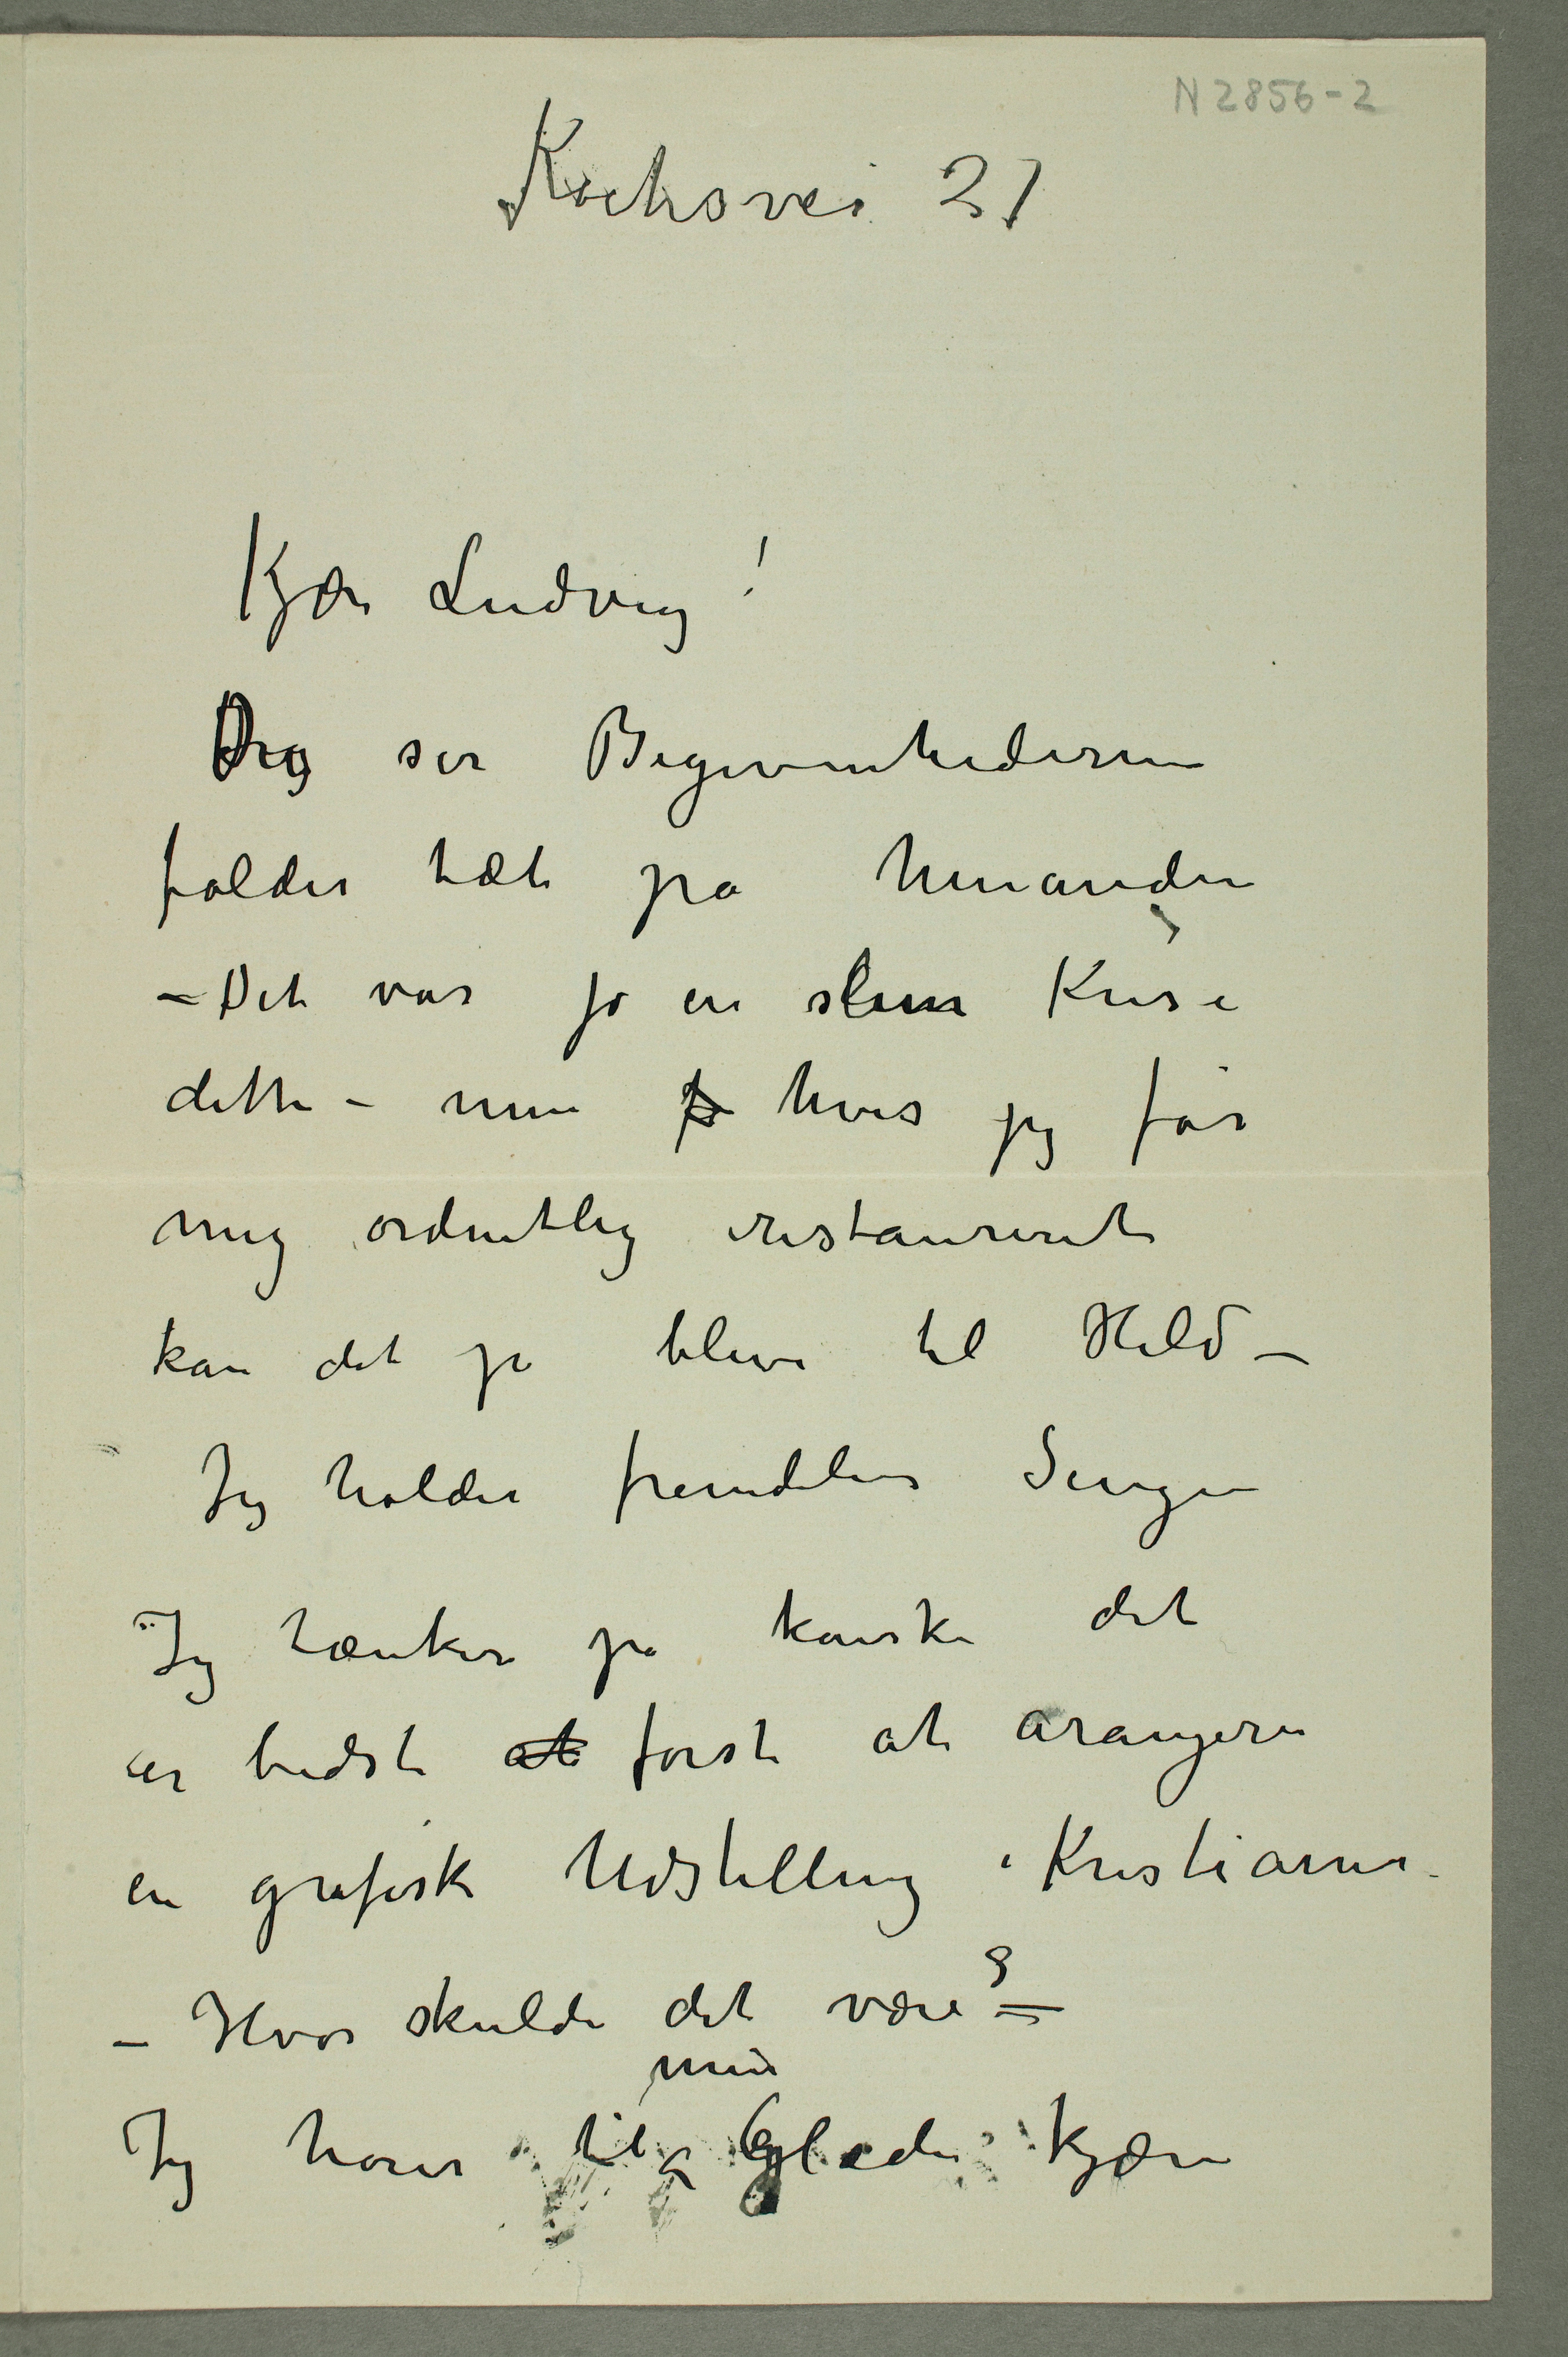 N 2856-2
Kochsvei 21
Kjære Ludvig!
Dig ser Begivenhederne
falder tæt på hinanden
– Det var jo en slem Krise
dette – men jo hvis jeg får
mig ordentlig restaureret
kan det jo blive til Held –
Jeg holder fremdeles Sengen
Jeg tænker på kanske det
er bedst at først at arangere
en grafisk Udstilling i Kristiania
– Hvor skulde det være? –
min
Jeg hører til Glæde kjære